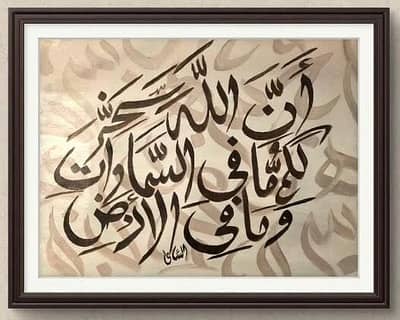 أَنَّ اللَّهَ سَخَّرَ
لَكُم مَّا فِي السَّمَاوَاتِ
وَمَا فِي الأَرْضِ